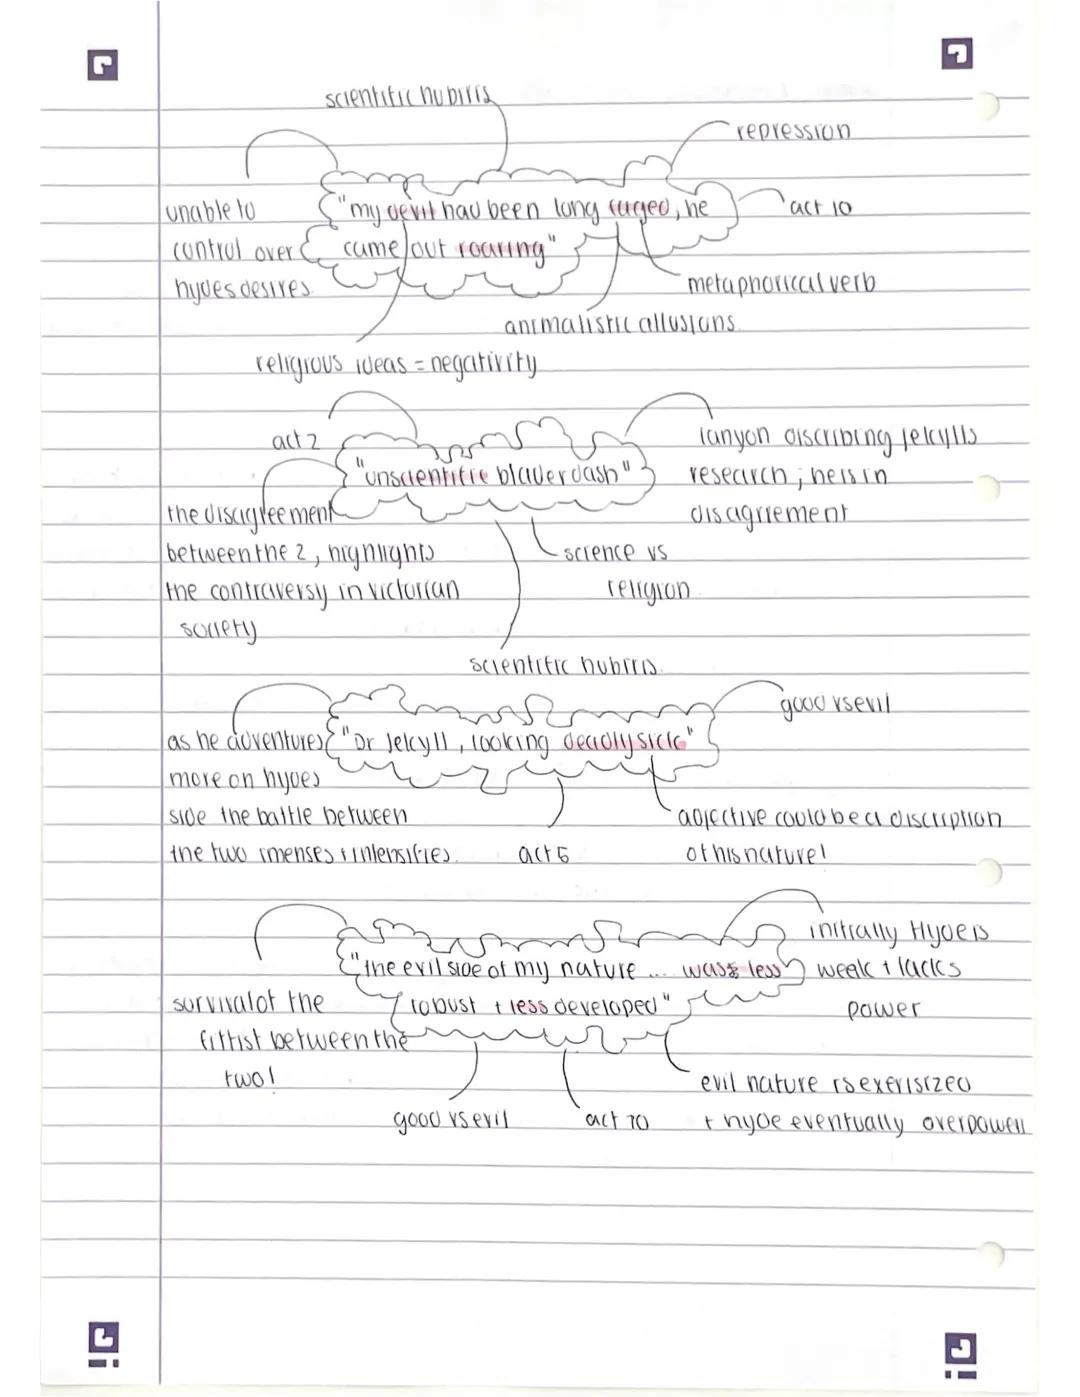 scientific hubris
repression
unable to
control over
hydes desires
"my devil had been long caged, he
came out roaring"
act 10
metaphorical verb
animalistic allusions
religious ideas = negativity
act 2
"unscientific blaverdash"
lanyon discribing jekylls
research ; he is in
disagrrement
the disagreement
between the 2, highlights
the contraversy in victorian
society
science vs
religion
scientific hubris
good vs evil
as he adventures
more on hydes
side the battle between
the two imenses + intensifies
"Dr Jekyll, looking deadly sick"
act 6
adjective could be a discription
of his nature!
initially Hyde is
weak + lacks
power
"the evil side of my nature .... was less
robust + less developed"
survival of the
fittist between the
two!
good vs evil
act 10
evil nature is exerisized
+ hyde eventually overpowers